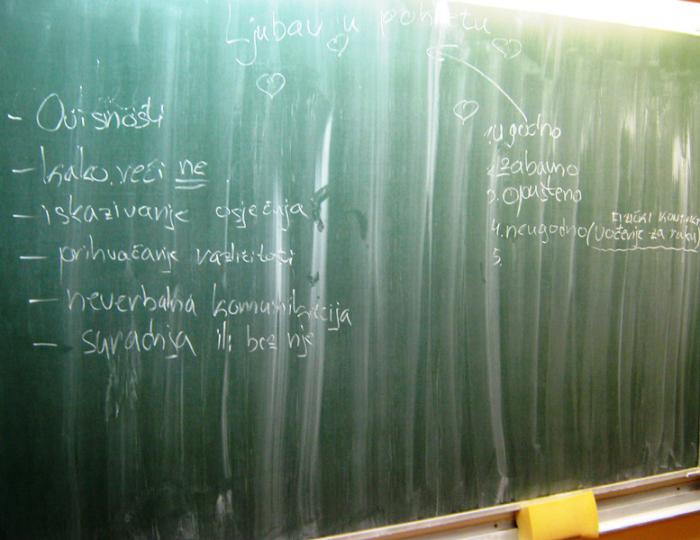 Ljubav u pokretu
- Ovisnosti
- kako reći ne
- iskazivanje osjećaja
- prihvaćanje različitosti
- neverbalna komunikacija
- suradnja ili bez nje
1. ugodno
2. zabavno
3. Opušteno
4. neugodno (vođenje za ruku)
5.